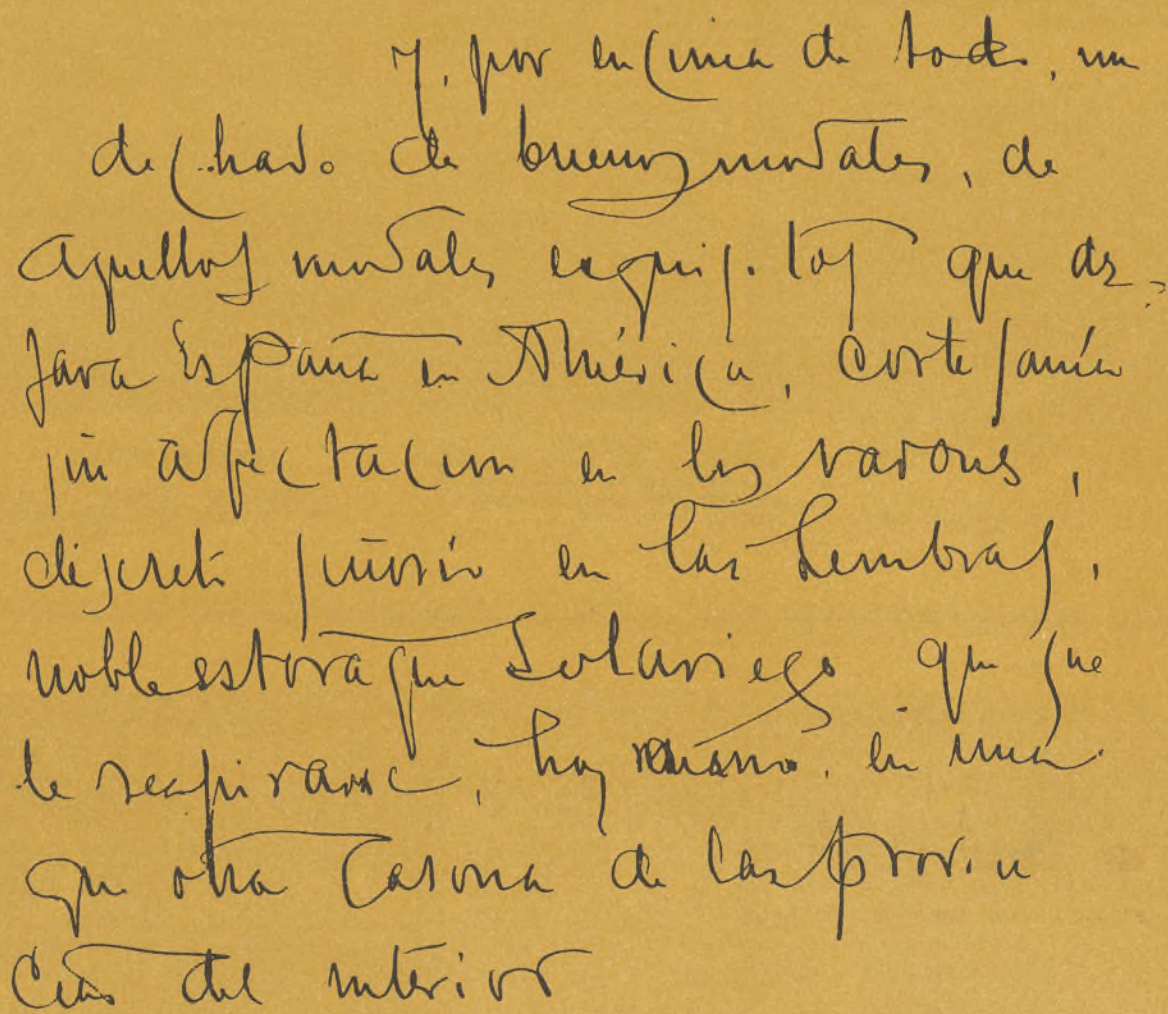 y, por encima de todo, un
dechado de buenos modales, de
aquellos modales exquisitos que de=
jara España en América, cortesanía
sin afectacion en los varones,
discreto señorío en las hembras,
noble estoraque solariego que sue
le respirarse, hoy mismo, en una
que otra casona de las provin
cias del interior